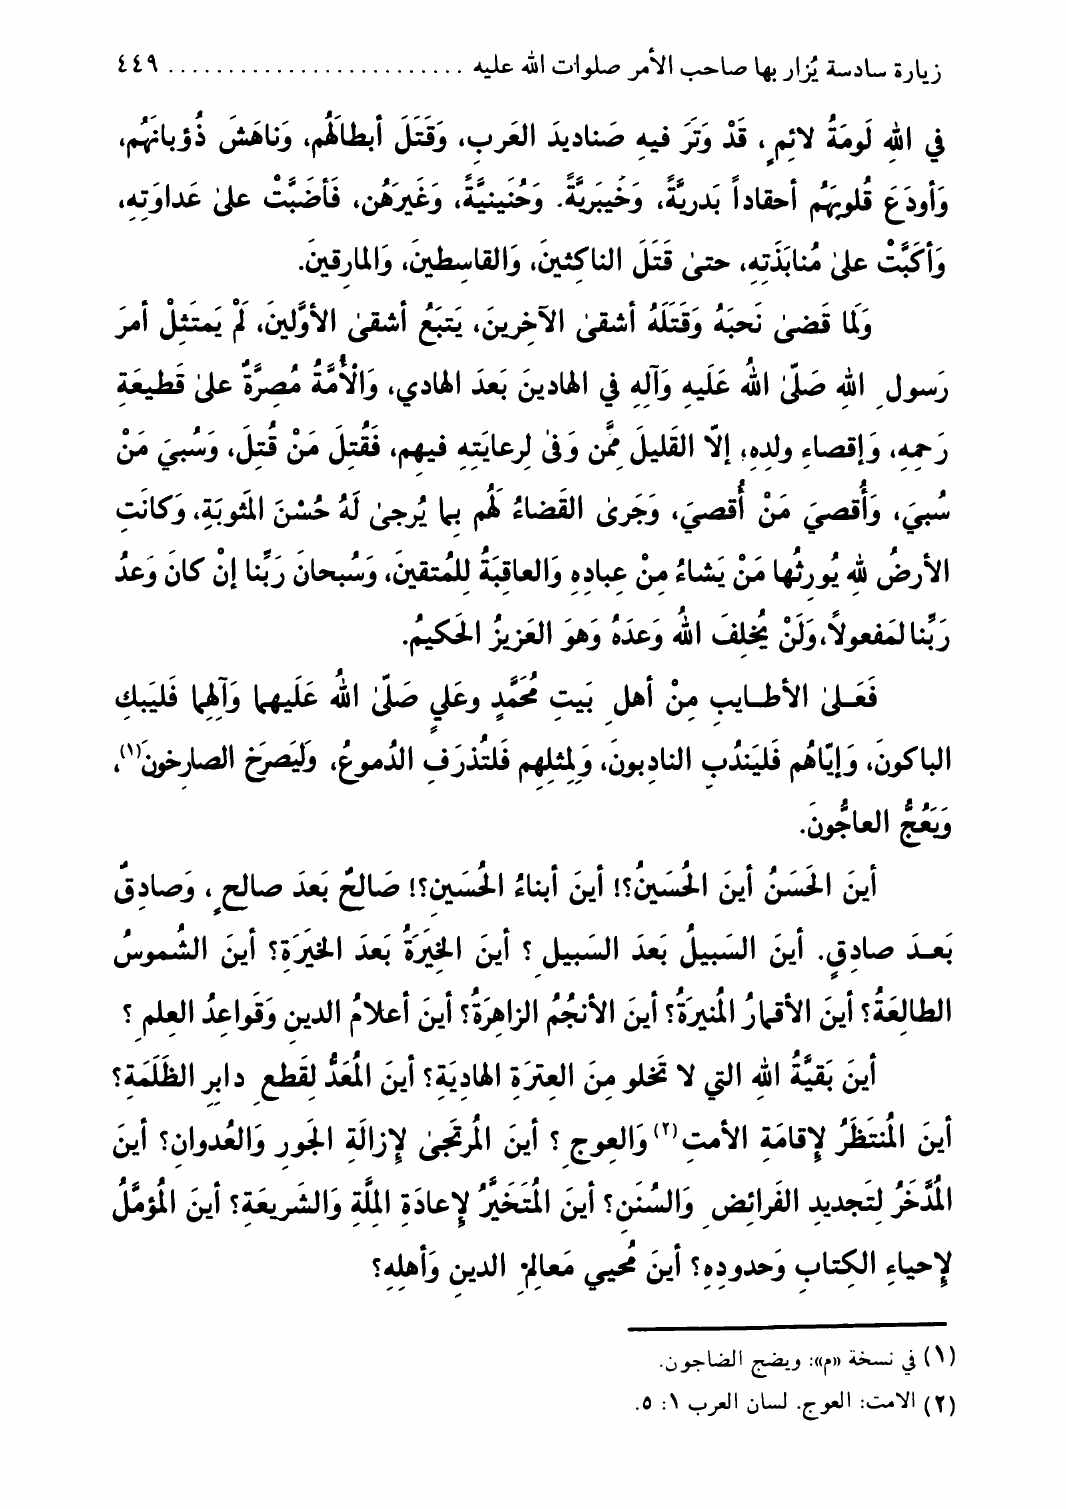 زيارة سادسة يُزار بها صاحب الأمر صلوات الله عليه ......................... ٤٤٩
في اللهِ لَومَةُ لائِمٍ، قَدْ وَتَرَ فيهِ صَناديدَ العَربِ، وَقَتَلَ أبطالَهُم، وَناهَشَ ذُؤبانَهُم،
وَأودَعَ قُلوبَهُم أحقاداً بَدريَّةً، وَخَيبَريَّةً. وَحُنَينيَّةً، وَغَيرَهُن، فَأضَبَّتْ علىٰ عَداوَتِهِ،
وَأكَبَّتْ علىٰ مُنابَذَتِهِ، حتىٰ قَتَلَ الناكِثينَ، وَالقاسِطينَ، وَالمارِقينَ.
وَلَما قَضىٰ نَحبَهُ وَقَتَلَهُ أشقىٰ الآخِرينَ، يَتبَعُ أشقىٰ الأوَّلينَ، لَمْ يَمتَثِلْ أمرَ
رَسولِ اللهِ صَلّىٰ اللهُ عَلَيهِ وَآلِهِ في الهادينَ بَعدَ الهادي، وَالْأُمَّةُ مُصِرَّةٌ علىٰ قَطيعَةِ
رَحِمِهِ، وَإقصاءِ ولدِهِ، إلاّ القَليلَ مِمَّن وَفىٰ لِرعايَتِهِ فيهِم، فَقُتِلَ مَنْ قُتِلَ، وَسُبيَ مَنْ
سُبيَ، وَأُقصيَ مَنْ أُقصيَ، وَجَرىٰ القَضاءُ لَهُم بِما يُرجىٰ لَهُ حُسْنَ المَثوبَةِ، وَكانَتِ
الأرضُ للهِ يُورِثُها مَنْ يَشاءُ مِنْ عِبادِهِ وَالعاقِبَةُ لِلمُتقينَ، وَسُبحانَ رَبِّنا إنْ كانَ وَعدُ
رَبِّنا لمَفعولاً، وَلَنْ يُخلِفَ اللهُ وَعدَهُ وَهوَ العَزيزُ الحَكيمُ.
فَعَلىٰ الأطايِبِ مِنْ أهلِ بَيتِ مُحَمَّدٍ وعَليٍ صَلّىٰ اللهُ عَلَيهما وَآلِهِما فَليَبكِ
الباكونَ، وَإيّاهُم فَليَندُبِ النادِبونَ، وَلِمثلِهِم فَلتُذرَفِ الدُموعُ، وَليَصرَخِ الصارِخونَ(١)،
وَيَعُجُّ العاجُّونَ.
أينَ الحَسَنُ أينَ الحُسَينُ؟! أينَ أبناءُ الحُسَينِ؟! صَالحٌ بَعدَ صالحٍ، وَصادِقٌ
بَعدَ صادِقٍ. أينَ السَبيلُ بَعدَ السَبيلِ؟ أينَ الخِيَرَةُ بَعدَ الخِيَرَةِ؟ أينَ الشُموسُ
الطالِعَةُ؟ أينَ الأقمارُ المُنيرَةُ؟ أينَ الأنجُمُ الزاهِرَةُ؟ أينَ أعلامُ الدينِ وَقَواعِدُ العِلمِ؟
أينَ بَقيَّةُ اللهِ التي لا تَخلو مِنَ العِترَةِ الهاديَةِ؟ أينَ المُعَدُّ لِقَطعِ دابِرِ الظَلَمَةِ؟
أينَ المُنتَظَرُ لِإقامَةِ الأمتِ(٢) وَالعِوجِ؟ أينَ المُرتَجىٰ لِإزالَةِ الجَورِ وَالعُدوانِ؟ أينَ
المُدَّخَرُ لِتَجديدِ الفَرائِضِ وَالسُنَنِ؟ أينَ المُتَخَيَّرُ لِإعادَةِ المِلَّةِ وَالشَريعَةِ؟ أينَ المُؤمَّلُ
لِإحياءِ الكِتابِ وَحدودِهِ؟ أينَ مُحيي مَعالِمِ الدينِ وَأهلِهِ؟
(١) في نسخة «م»: ويضج الضاجون.
(٢) الامت: العوج. لسان العرب ١: ٥.